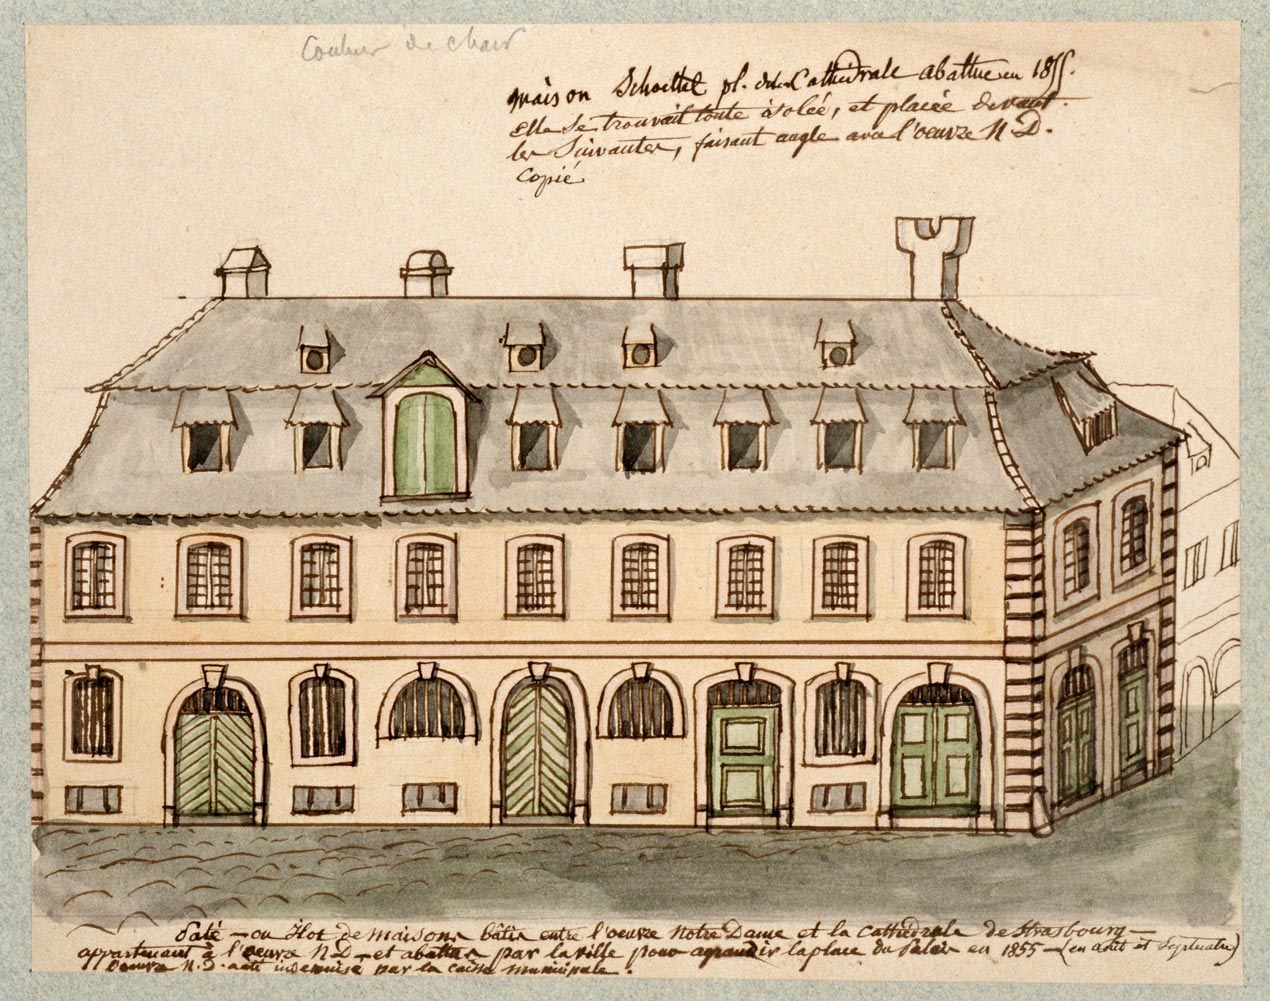 Couleur de chair
Maison Schoettel pl. de la Cathédrale abattue en 1855.
elle se trouvait toute isolée, et placée devant
les suivantes, faisant angle avec l'oeuvre N D.
copié
Paté - ou Ilot de maisons bâtis entre l'oeuvre Notre Dame et la Cathédrale de Strasbourg -
appartenant à l'oeuvre N D - et abattus par la ville pour agrandir la place du Palais en 1855 - (en Août et Septembre)
l'oeuvre N. D. a été indemnisé par la caisse municipale.